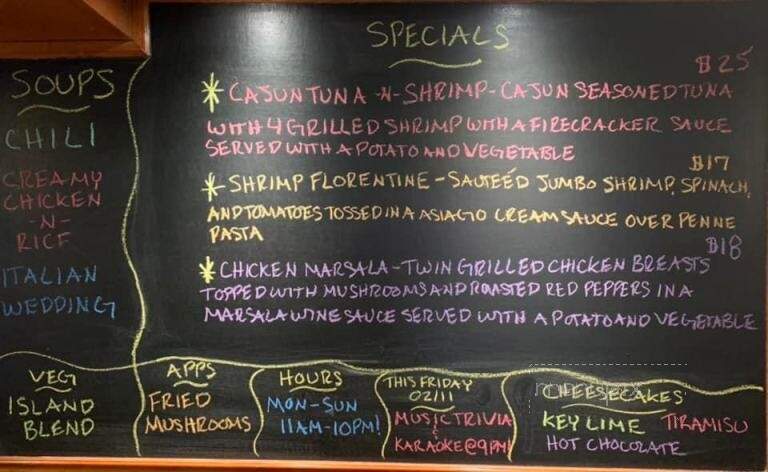 SOUPS
CHILI
CREAMY
CHICKEN
-N-
RICE
ITALIAN
WEDDING
SPECIALS
$25
* CAJUN TUNA -N- SHRIMP - CAJUN SEASONED TUNA
WITH 4 GRILLED SHRIMP WITH A FIRECRACKER SAUCE
SERVED WITH A POTATO AND VEGETABLE
$17
* SHRIMP FLORENTINE - SAUTEÉD JUMBO SHRIMP, SPINACH,
AND TOMATOES TOSSED IN A ASIAGO CREAM SAUCE OVER PENNE
PASTA
$18
* CHICKEN MARSALA - TWIN GRILLED CHICKEN BREASTS
TOPPED WITH MUSHROOMS AND ROASTED RED PEPPERS IN A
MARSALA WINE SAUCE SERVED WITH A POTATO AND VEGETABLE
VEG
ISLAND
BLEND
APPS
FRIED
MUSHROOMS
HOURS
MON-SUN
11AM-10PM!
THIS FRIDAY
02/11
MUSIC TRIVIA
&
KARAOKE @ 9PM!
CHEESECAKES
KEY LIME TIRAMISU
HOT CHOCOLATE